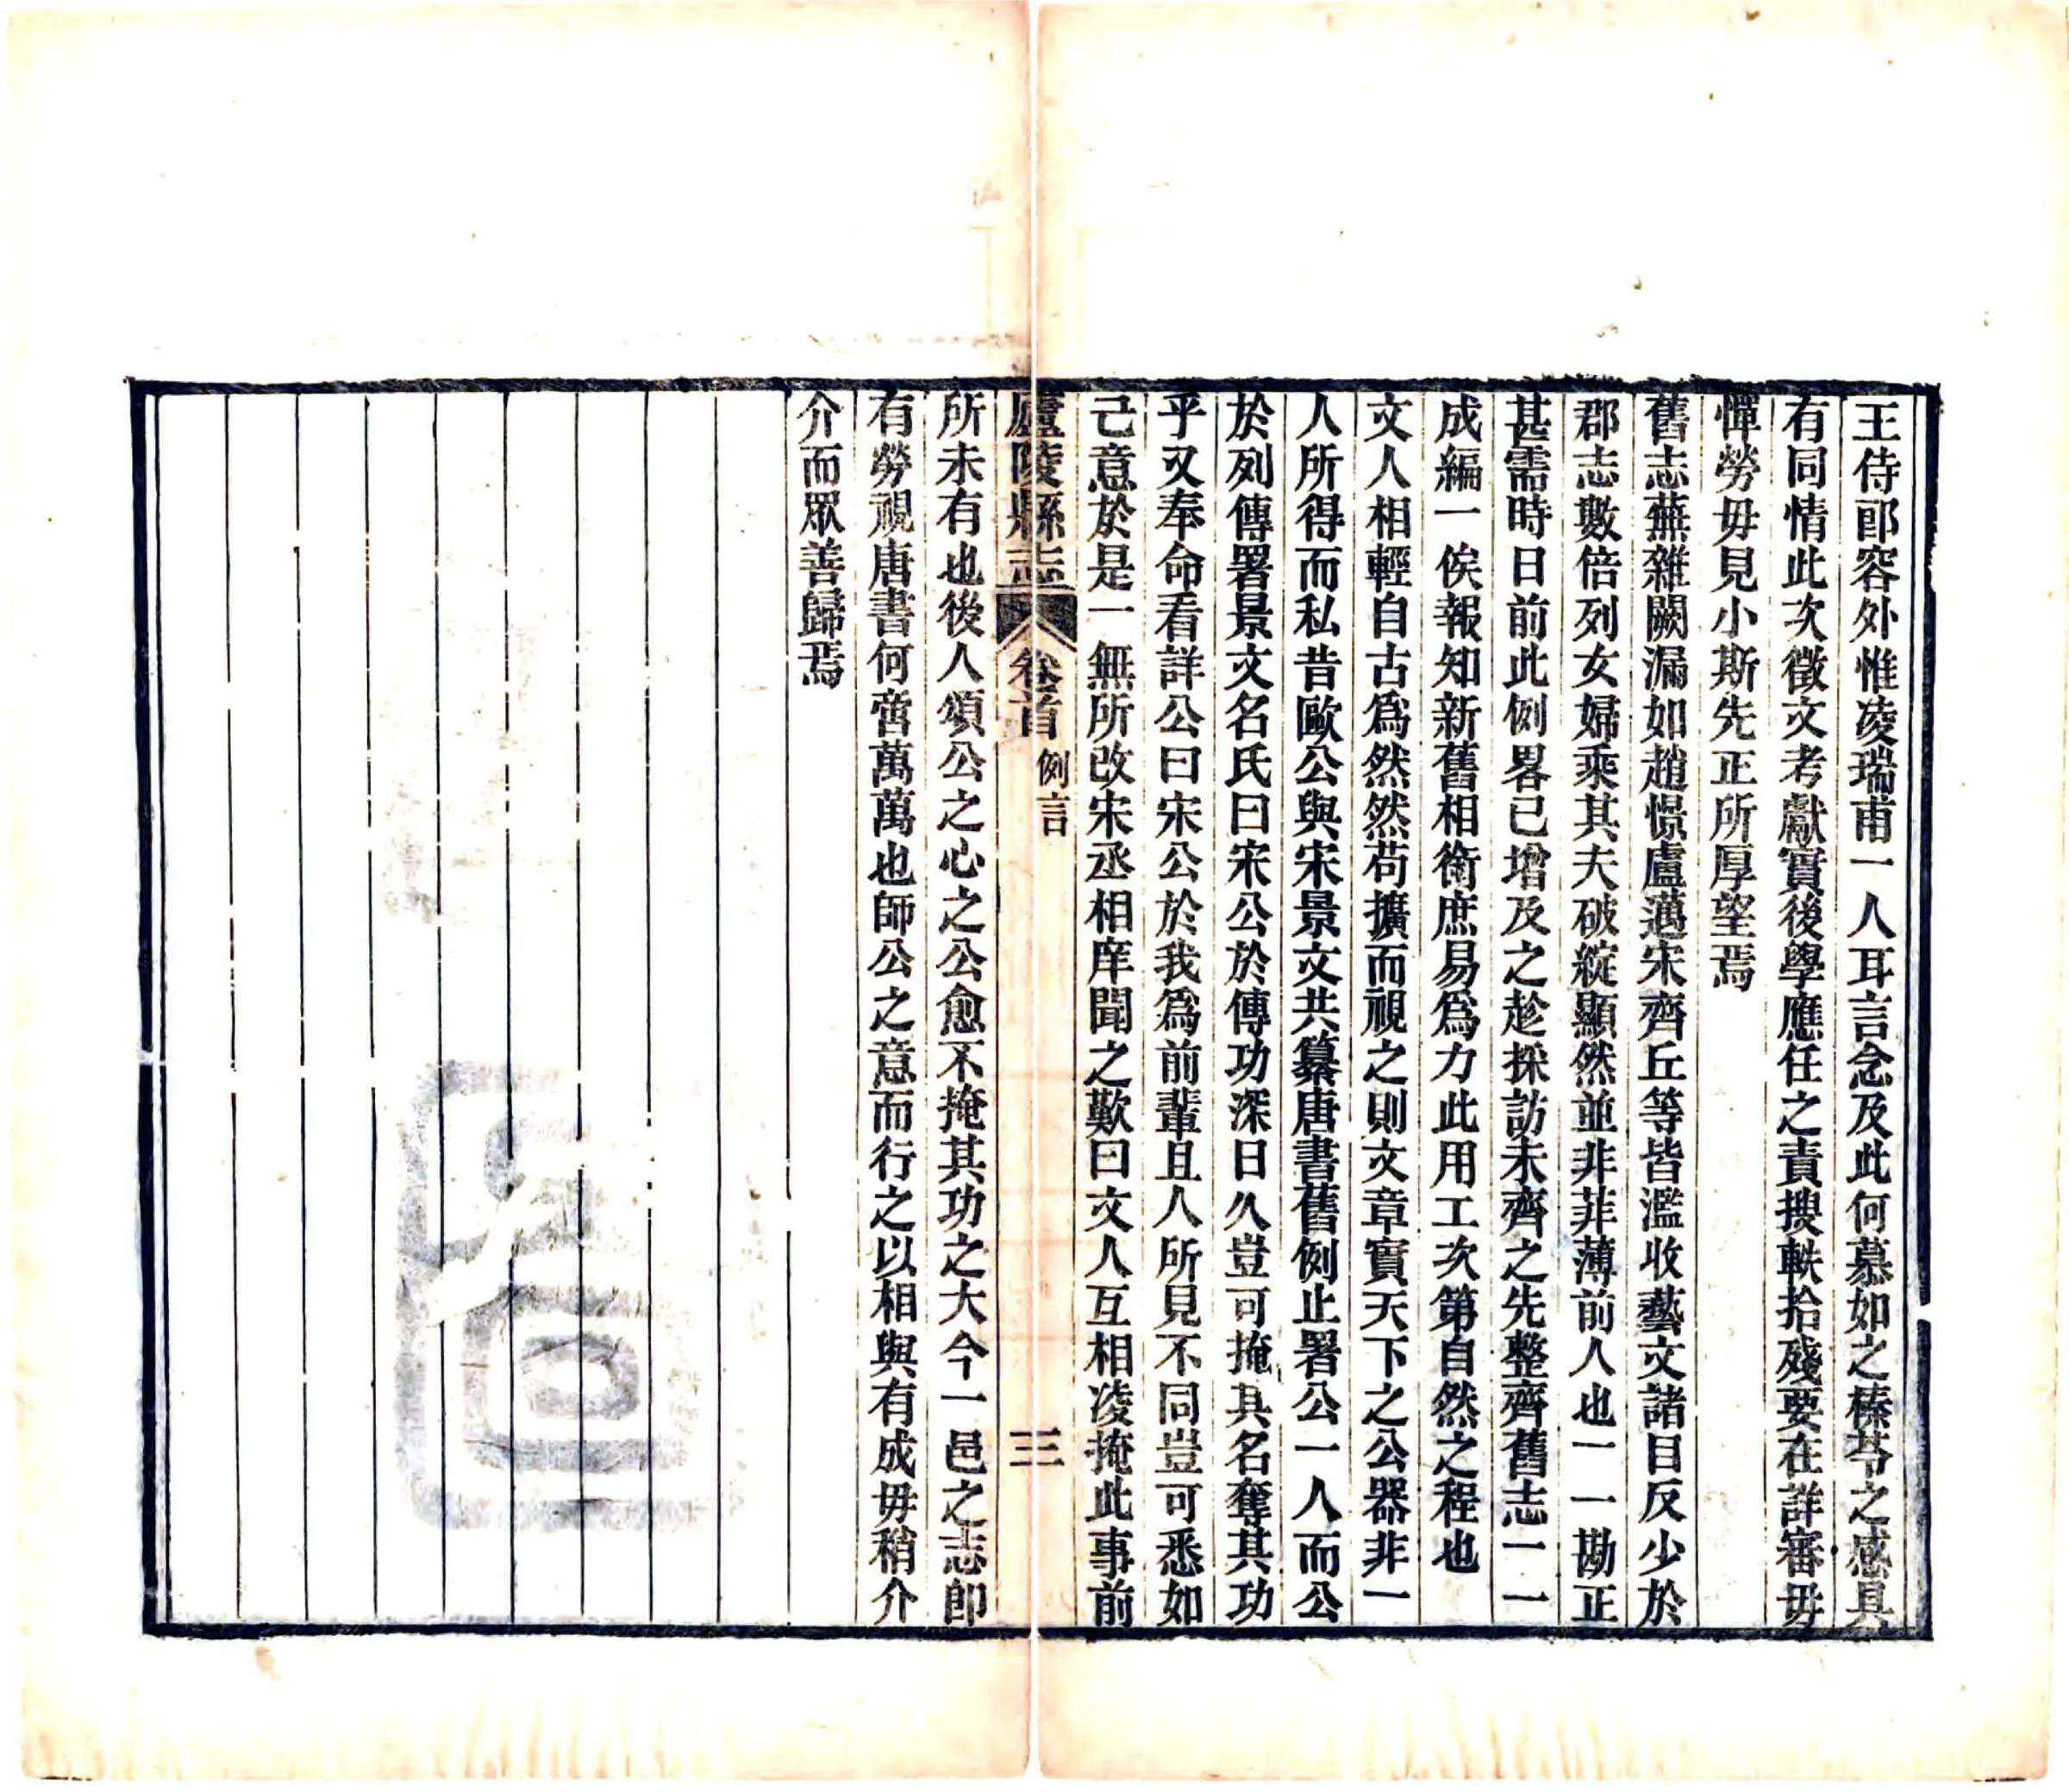 王侍郎容外惟凌瑞甫一人耳言念及此何慕如之榛苓之感具
有同情此次徵文考獻實後學應任之責搜軼拾殘要在詳審毋
憚勞毋見小斯先正所厚望焉
舊志蕪雜闕漏如趙憬盧邁宋齊丘等皆濫收藝文諸目反少於
郡志數倍列女婦乘其夫破綻顯然並非菲薄前人也一一勘正
甚需時日前此例畧已增及之趁採訪未齊之先整齊舊志一一
成編一俟報知新舊相銜庶易為力此用工次第自然之程也
文人相輕自古為然然苟擴而視之則文章實天下之公器非一
人所得而私昔歐公與宋景文共纂唐書舊例止署公一人而公
於列傳署景文名氏曰宋公於傳功深日久豈可掩其名奪其功
乎又奉命看詳公曰宋公於我為前輩且人所見不同豈可悉如
己意於是一無所改宋丞相庠聞之歎曰文人互相凌掩此事前
廬陵縣志 卷首 例言 三
所未有也後人頌公之心之公愈不掩其功之大今一邑之志即
有勞視唐書何啻萬萬也師公之意而行之以相與有成毋稍介
介而眾善歸焉